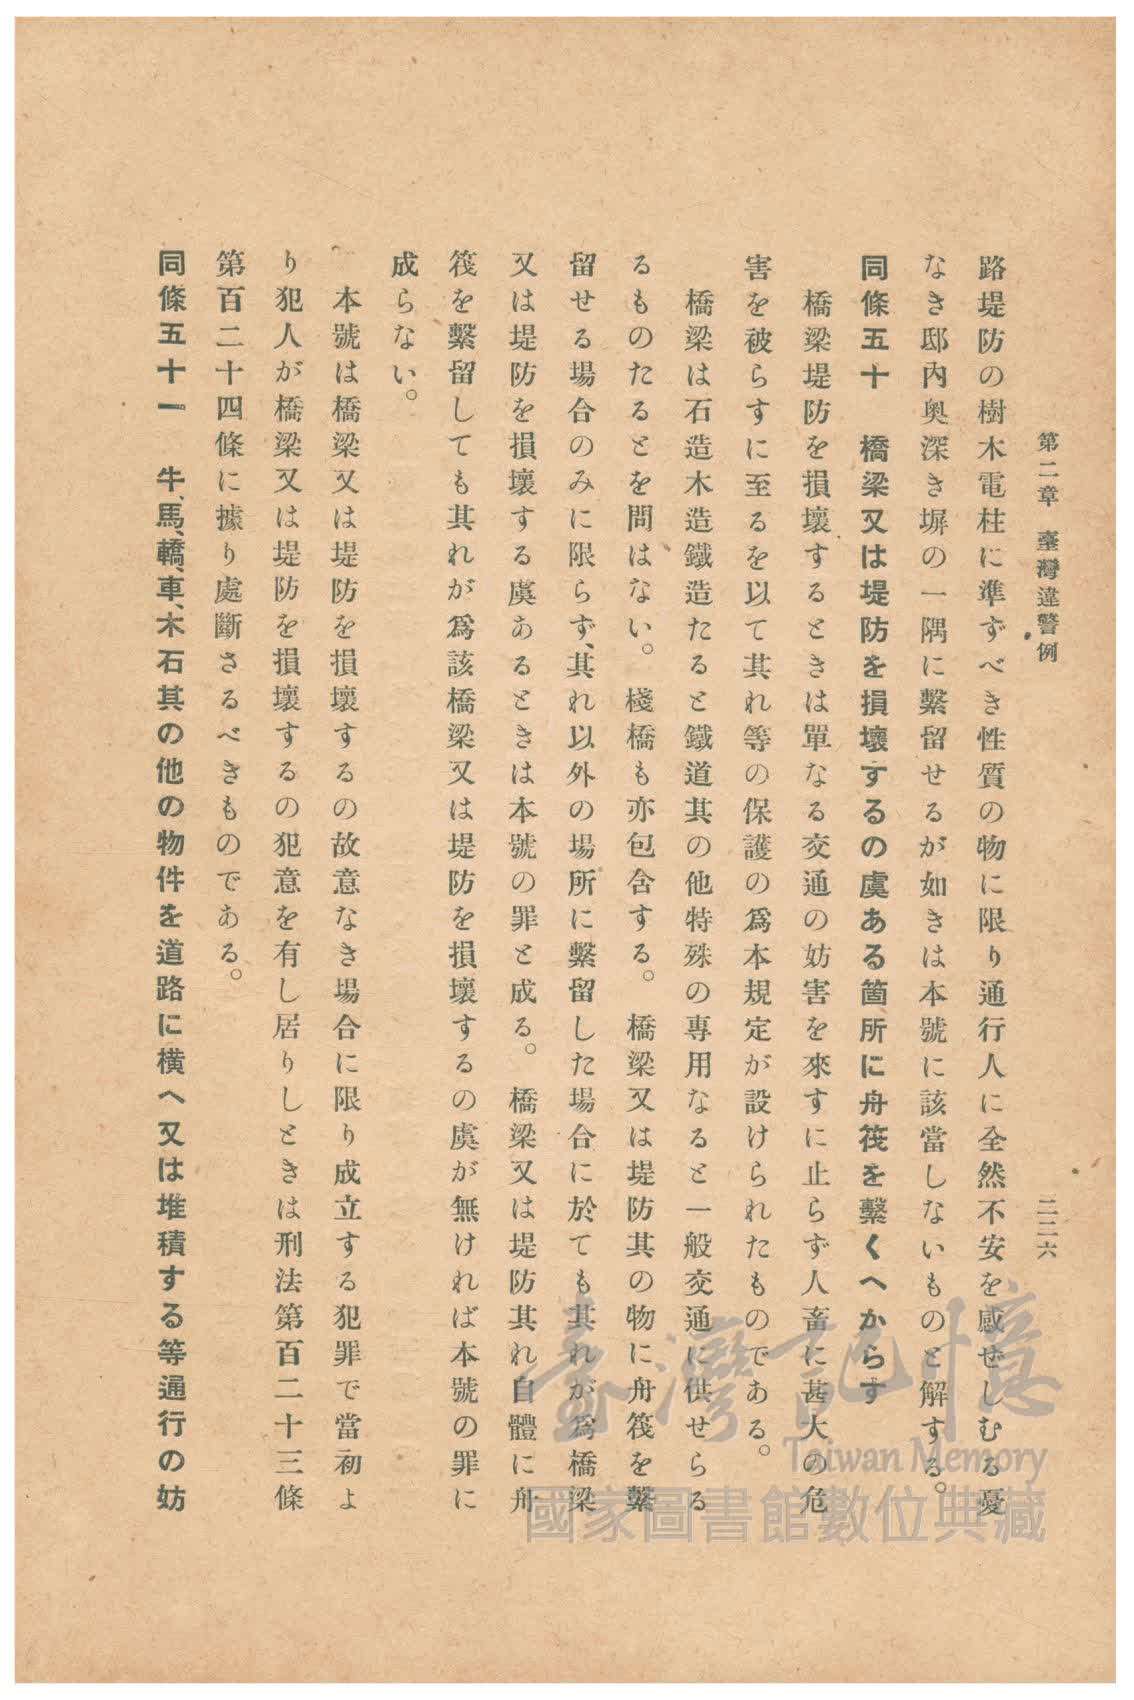 第二章　臺灣違警例　二二六
路堤防の樹木電柱に準ずべき性質の物に限り通行人に全然不安を感ぜしむる憂
なき邸內奥深き塀の一隅に繫留せるが如きは本號に該當しないものと解する。
同條五十　橋梁又は堤防を損壞するの虞ある箇所に舟筏を繫くへからす
橋梁堤防を損壞するときは單なる交通の妨害を來すに止らず人畜に甚大の危
害を被らすに至るを以て其れ等の保護の爲本規定が設けられたものである。
橋梁は石造木造鐵造たると鐵道其の他特殊の專用なると一般交通に供せらる
るものたるとを問はない。棧橋も亦包含する。橋梁又は堤防其の物に舟筏を繫
留せる場合のみに限らず、其れ以外の場所に繫留した場合に於ても其れが爲橋梁
又は堤防を損壞する虞あるときは本號の罪と成る。橋梁又は堤防其れ自體に舟
筏を繫留しても其れが爲該橋梁又は堤防を損壞するの虞が無ければ本號の罪に
成らない。
本號は橋梁又は堤防を損壞するの故意なき場合に限り成立する犯罪で當初よ
り犯人が橋梁又は堤防を損壞するの犯意を有し居りしときは刑法第百二十三條
第百二十四條に據り處斷さるべきものである。
同條五十一　牛、馬、轎、車、木石其の他の物件を道路に橫へ又は堆積する等通行の妨
臺灣記憶
Taiwan Memory
國家圖書館數位典藏